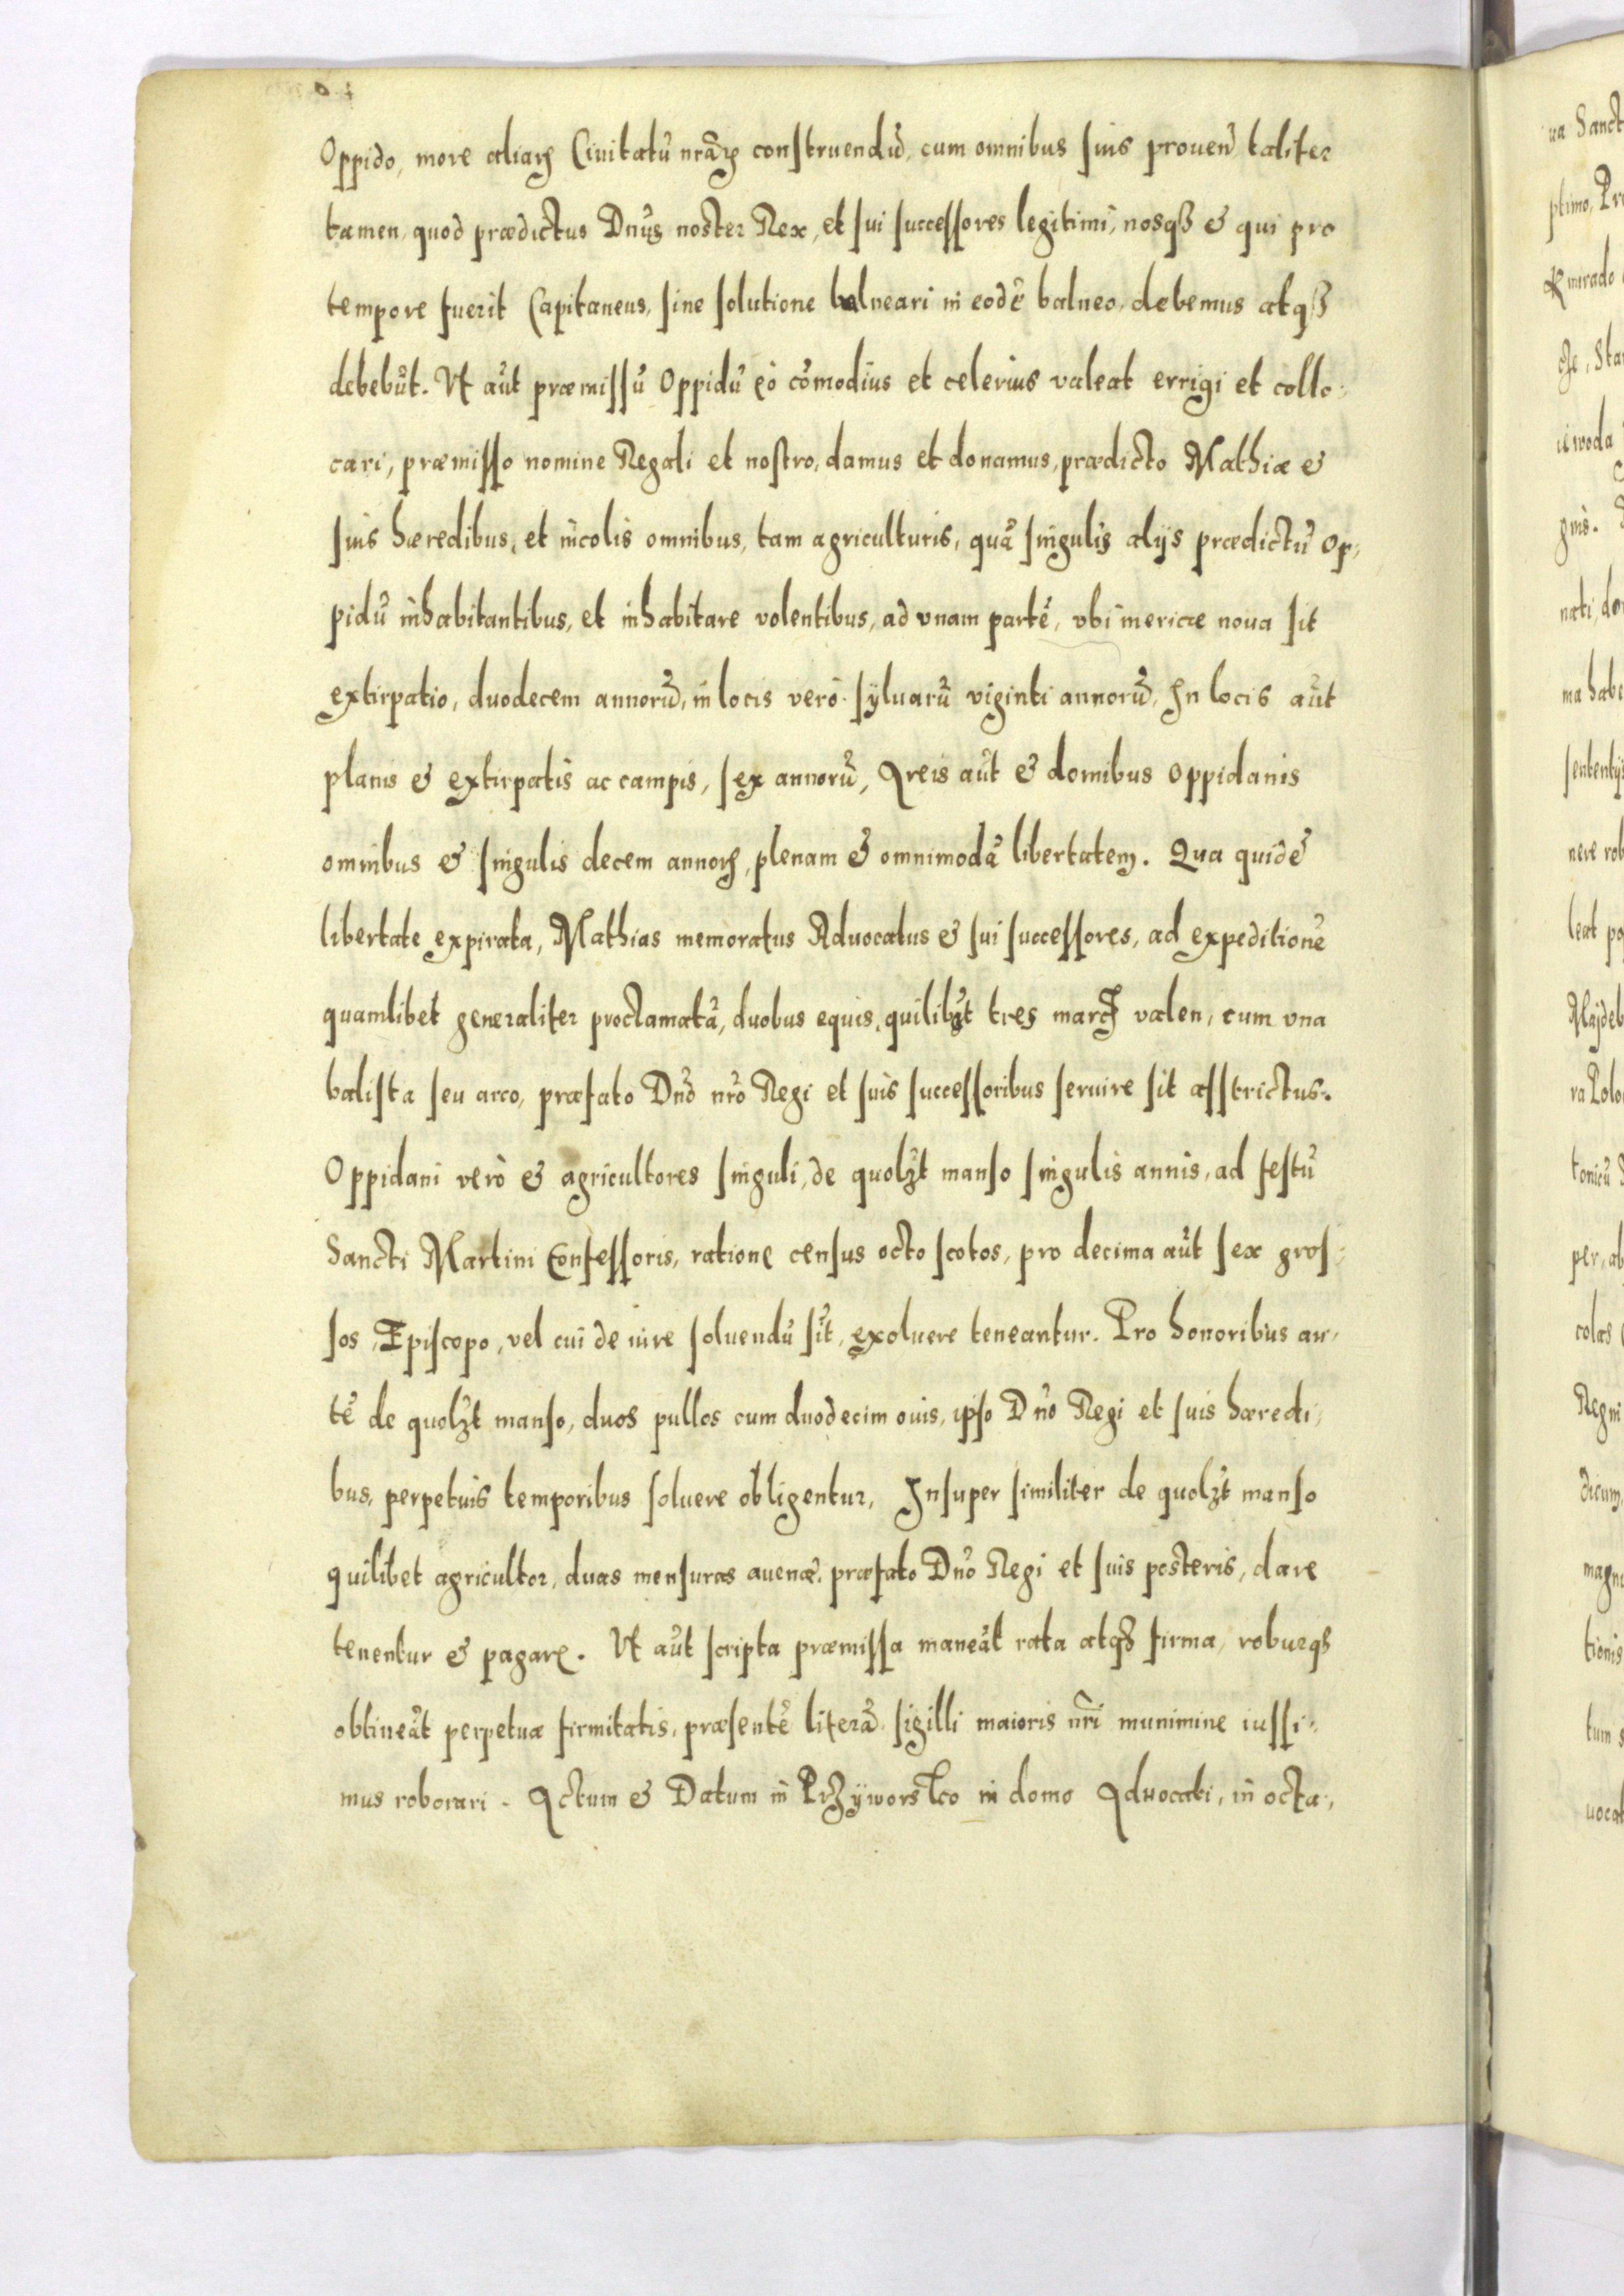 Oppido, more aliarꝝ Ciuitatũ nrãꝝ construendũ, cum omnibus suis prouen̄ taliter
tamen, quod prædictus Dnũs noster Rex, et sui successores legitimi, nosqꝫ & qui pro
tempore fuerit Capitaneus, sine solutione balneari in eodẽ balneo, debemus atqꝫ
debebũt. Vt aũt præmissũ Oppidũ eò cõmodius et celerius valeat errigi et collo-
cari, præmisso nomine Regali et nostro, damus et donamus, prædicto Mathiæ &
suis hæredibus, et incolis omnibus, tam agriculturis, quã singulis alijs prædictũ Op-
pidũ inhabitantibus, et inhabitare volentibus, ad vnam partẽ, vbi mericæ noua sit
extirpatio, duodecem annorũ, in locis verò syluarũ viginti annorũ, In locis aũt
planis & extirpatis ac campis, sex annorũ, Areis aũt & domibus oppidanis
omnibus & singulis decem annorꝝ, plenam & omnimodã libertatem. Qua quidẽ
libertate expirata, Mathias memoratus Aduocatus & sui successores, ad expeditionẽ
quamlibet generaliter proclamatã, duobus equis, quilibꝫt tres marcꝭ valen, cum vna
balista seu arco, præfato Dnõ nrõ Regi et suis successoribus seruire sit asstrictus.
Oppidani verò & agricultores singuli, de quolꝫt manso singulis annis, ad festũ
Sancti Martini Confessoris, ratione census octo scotos, pro decima aũt sex gros-
sos, Episcopo, vel cui de iure soluendũ sit, exoluere teneantur. Pro honoribus au-
tẽ de quolꝫt manso, duos pullos cum duodecim ouis, ipso Dnõ Regi et suis hæredi-
bus, perpetuis temporibus soluere obligentur, Insuper similiter de quolꝫt manso
quilibet agricultor, duas mensuras auenæ, præfato Dnõ Regi et suis posteris, dare
tenentur & pagare. Vt aũt scripta præmissa maneãt rata atqꝫ firma, roburqꝫ
obtineãt perpetuæ firmitatis, præsentẽ literã sigilli maioris nr̃i munimine iussi-
mus roborari. Actum & Datum in Przyworsko in domo Aduocati, in octa-